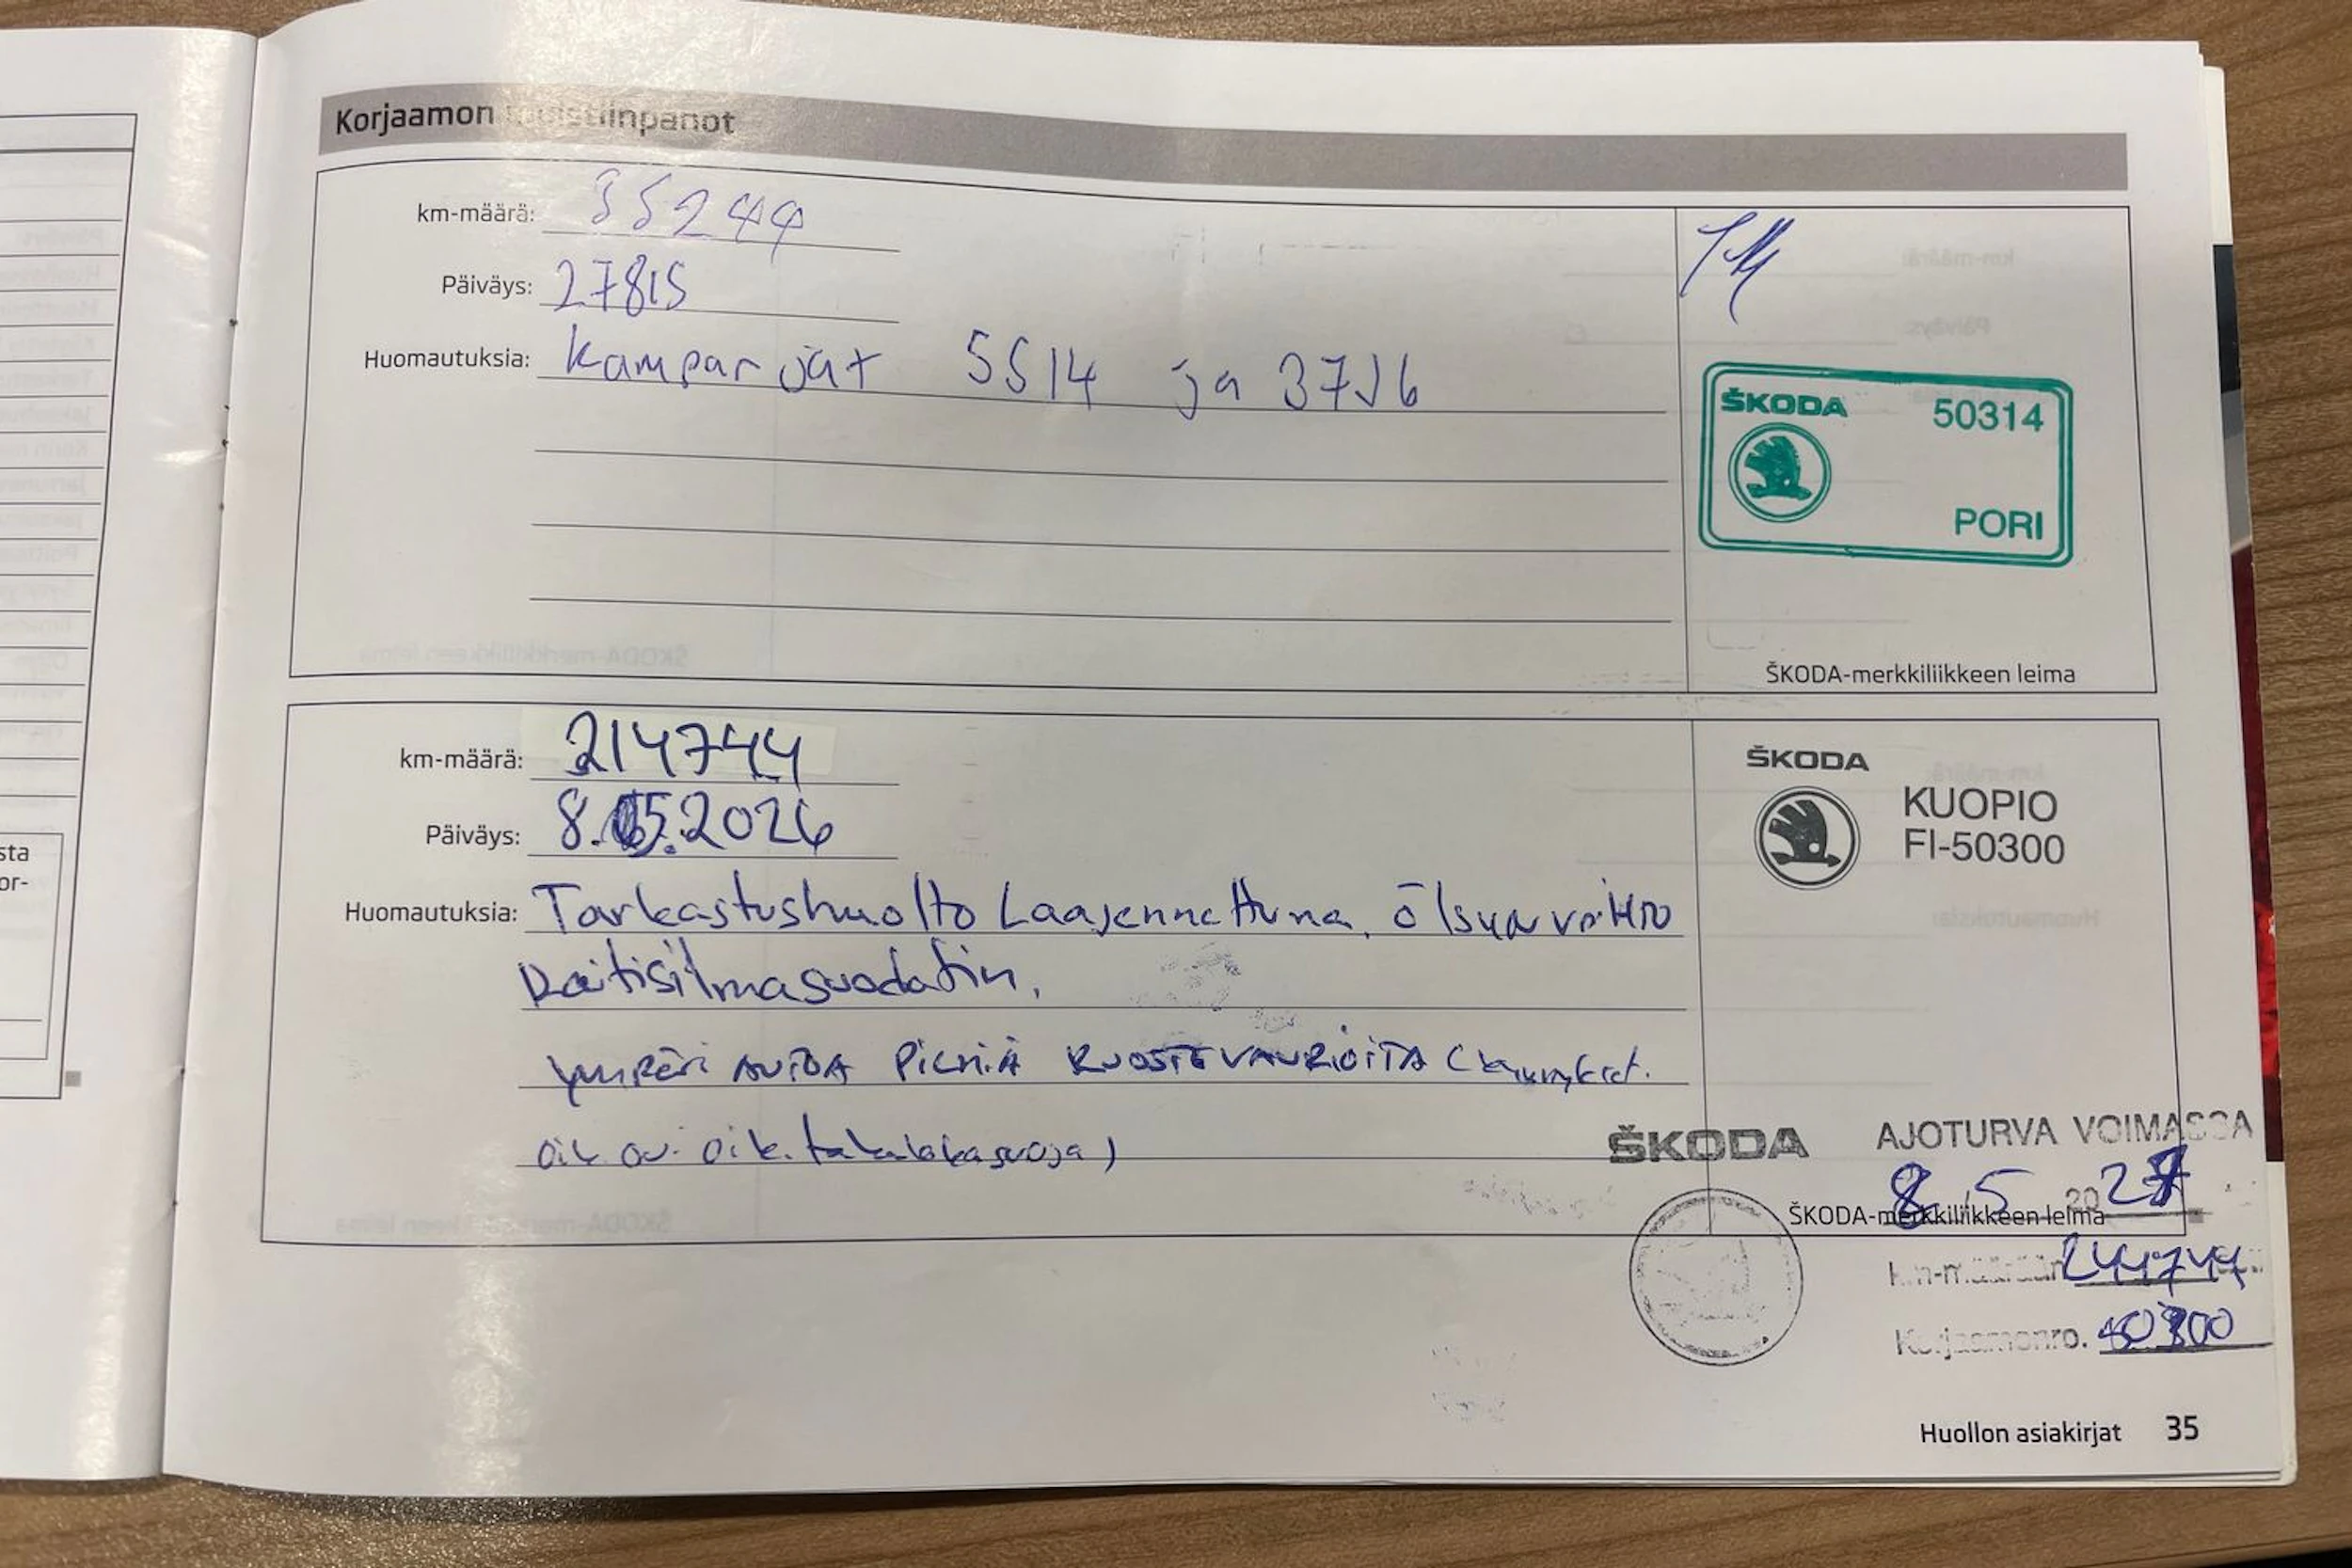 Korjaamon muistiinpanot
km-määrä: 35244
Päiväys: 27815
Huomautuksia: kamparjat 5514 ja 37J6
ŠKODA 50314
PORI
ŠKODA-merkkiliikkeen leima
km-määrä: 214744
Päiväys: 8.05.2026
Huomautuksia: Tarkastushuolto Laajennettuna. öljynvaihto
Raitisilmasuodatin.
ympäri autoa pieniä RUOSTEVAURIOITA (kynnykset.
oik ovi oik. takalokasuoja)
ŠKODA
KUOPIO
FI-50300
ŠKODA AJOTURVA VOIMASSA
8.5 2027
ŠKODA-merkkiliikkeen leima
km-määrään 244744
Korjaamonro.
Huollon asiakirjat 35
sta
or-